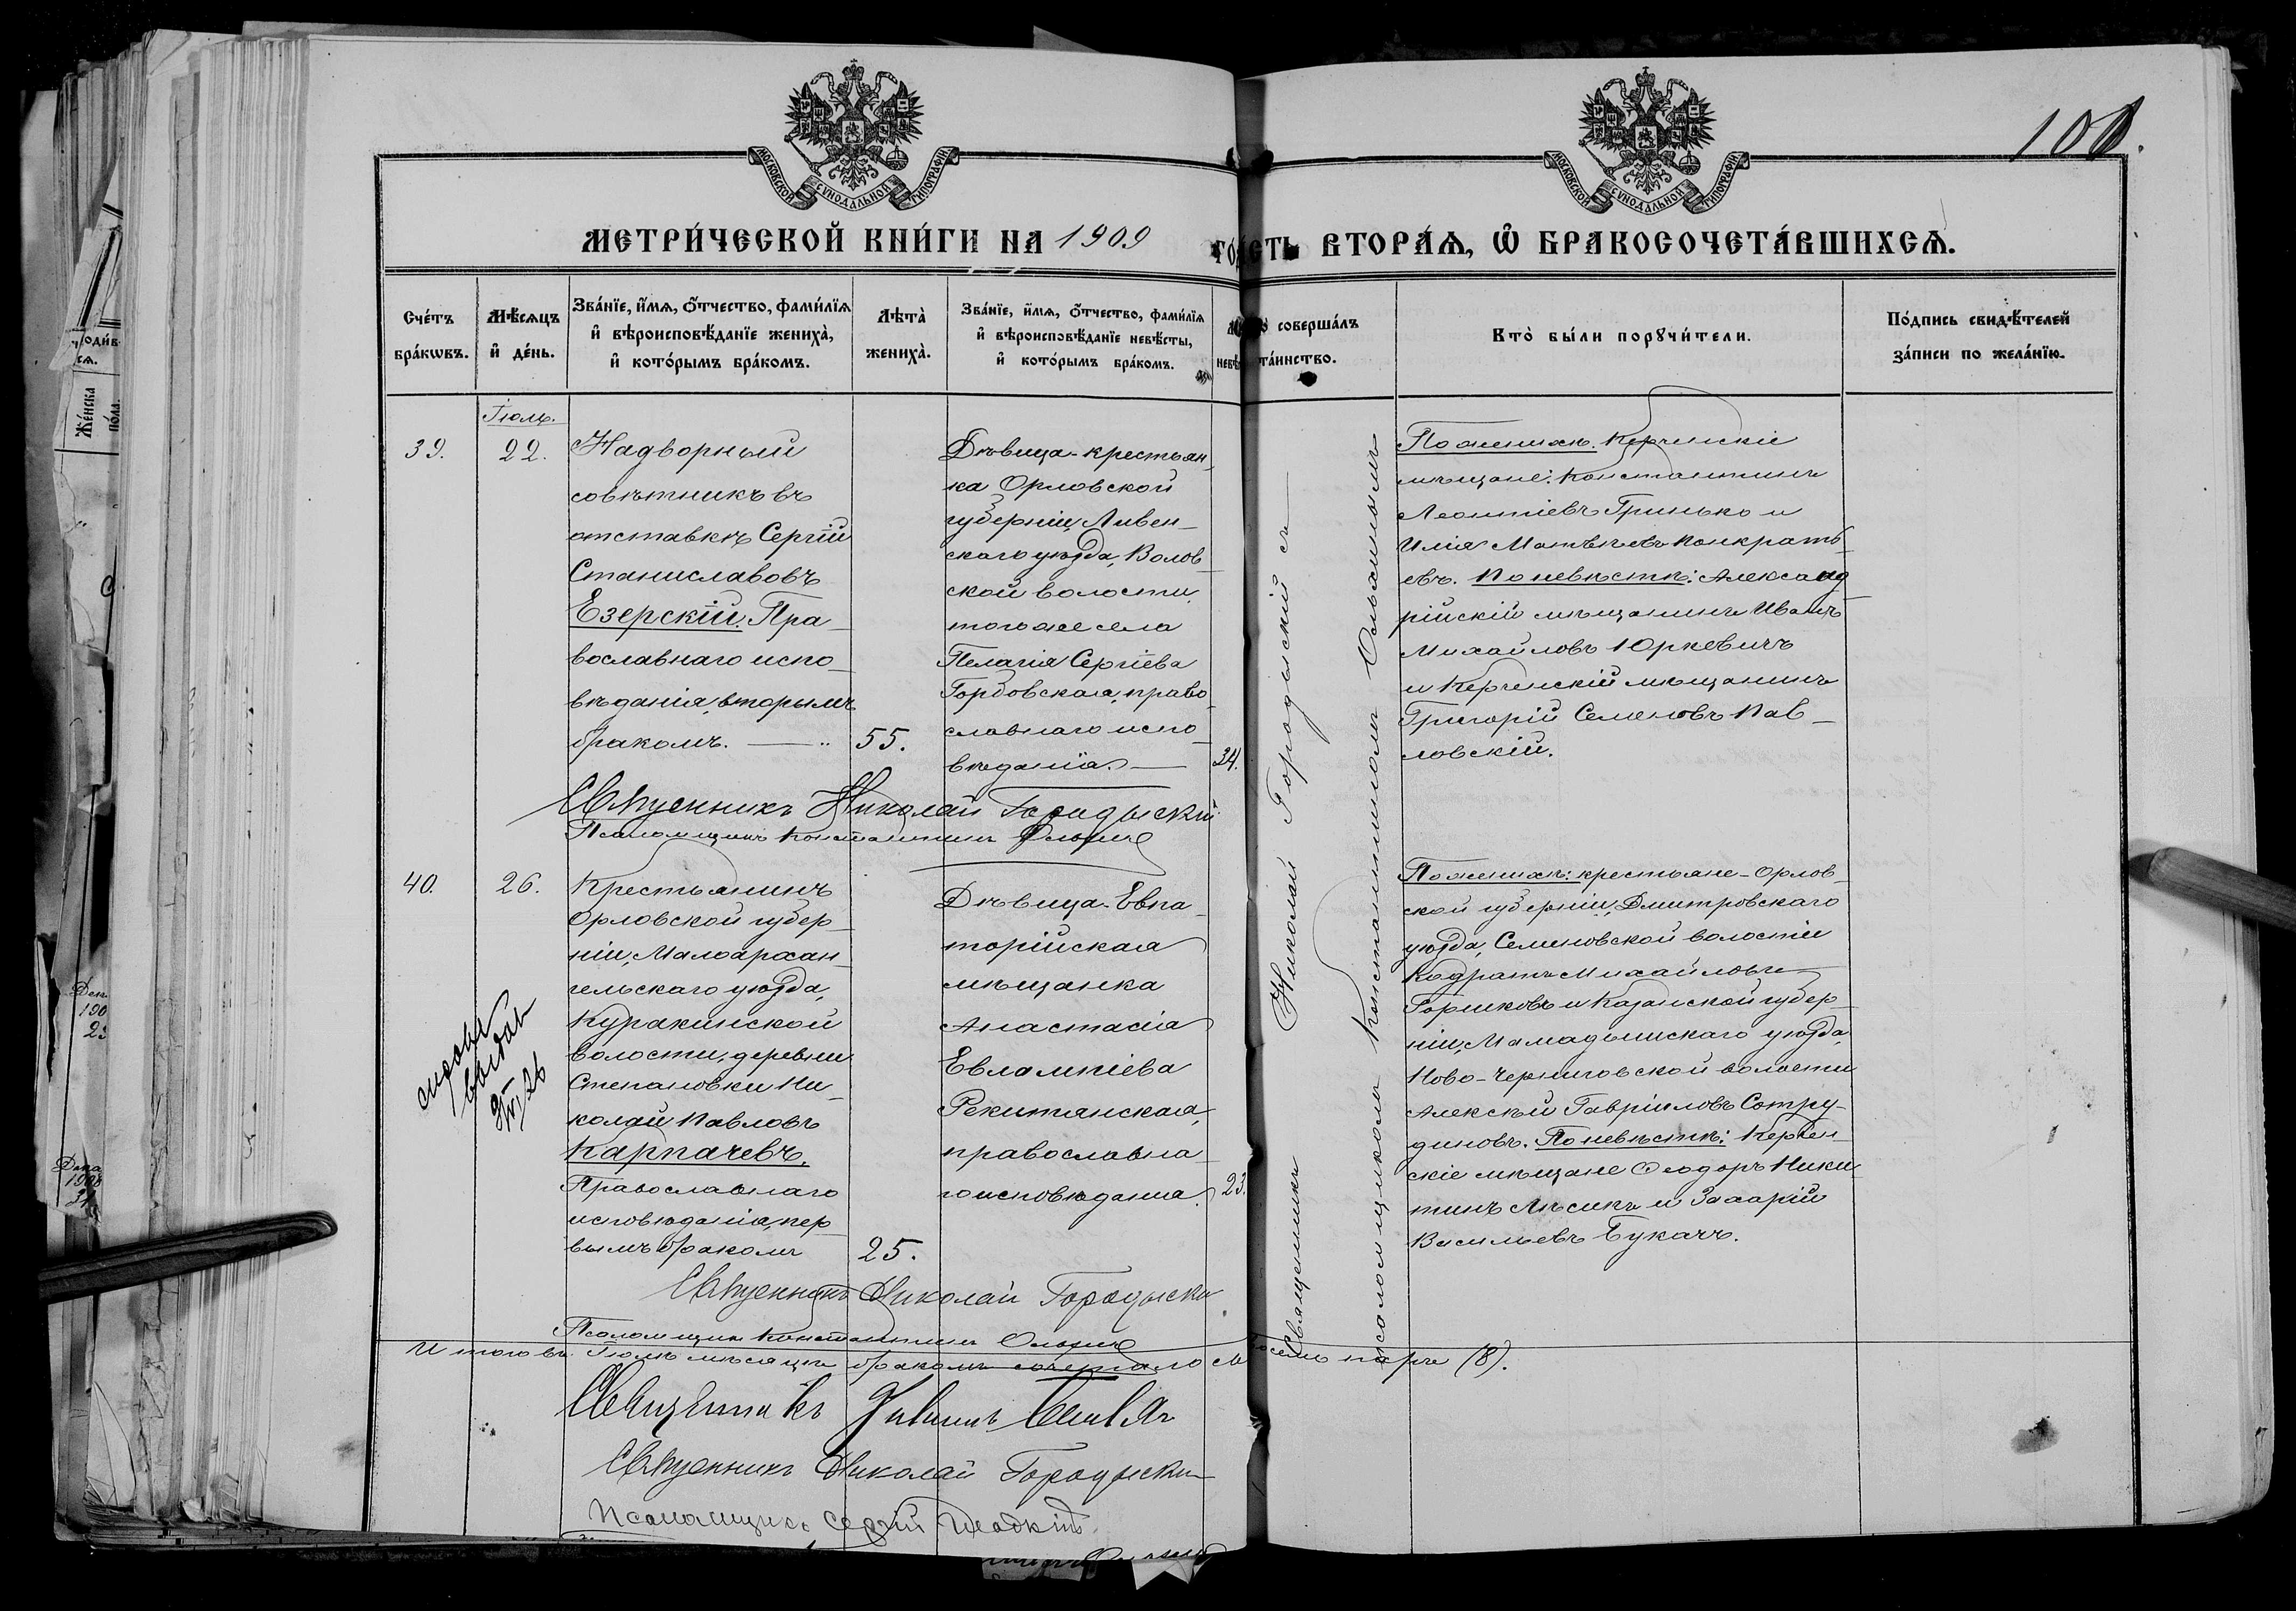 МОСКОВСКОЙ СѴНОДАЛЬНОЙ ТИПОГРАФІИ
МОСКОВСКОЙ СѴНОДАЛЬНОЙ ТИПОГРАФІИ
МЕТРИ́ЧЕСКОЙ КНИ́ГИ НА 1909
ВТОРА́Я, Ѽ БРАКОСОЧЕТА́ВШИХСЯ.
Сче́тъ
бра́кѡвъ.
Мѣ́сяцъ
и҆ де́нь.
Зва́нїе, и҆́мя, ѻ҆́тчество, фами́лїя
и҆ вѣроисповѣ́данїе жениха̀,
и҆ кото́рымъ бра́комъ.
Лѣта̀
жениха̀.
Зва́нїе, и҆́мя, ѻ҆́тчество, фами́лїя
и҆ вѣроисповѣ́данїе невѣ́сты,
и҆ кото́рымъ бра́комъ.
соверша́лъ
та́инство.
Кто̀ бы́ли порꙋчи́тели.
По́дпись свидѣ́телей
за́писи по жела́нїю.
Іюль.
39.
22.
Надворный
совѣтникъ въ
отставкѣ Сергій
Станиславовъ
Езерскій. Пра-
вославнаго испо-
вѣданія, вторымъ
бракомъ.
55.
Дѣвица-крестьян-
ка Орловской
губерніи, Ливен-
скаго уѣзда, Волов-
ской волости,
того же села
Пелагія Сергіева
Горбовская, право-
славнаго испо-
вѣданія.
34.
По женихѣ: Керченскіе
мѣщане: Константинъ
Леонтіевъ Гринько и
Илія Матвѣевъ Панкрать-
евъ. По невѣстѣ: Александ-
рійскій мѣщанинъ Иванъ
Михайловъ Юркевичъ
и Керченскій мѣщанинъ
Григорій Семеновъ Пав-
ловскій.
Священникъ Николай Городыскій
Псаломщикъ Константинъ
40.
26.
Крестьянинъ
Орловской губер-
ніи, Малоархан-
гельскаго уѣзда,
Куракинской
волости, деревни
Степановки Ни-
колай Павловъ
Карпачевъ.
Православнаго
исповѣданія, пер-
вымъ бракомъ
25.
Дѣвица-Евпа-
торійская
мѣщанка
Анастасія
Евлампіева
Рекитянская,
православна-
го исповѣданія.
23.
Священникъ Николай Городыскій съ
псаломщикомъ Константиномъ
По женихѣ: крестьяне-Орлов-
ской губерніи, Дмитровскаго
уѣзда, Семеновской волости
Кодратъ Михайловъ
Горшковъ и Казанской губер-
ніи, Мамадышскаго уѣзда,
Ново-Черниговской волости
Алексѣй Гавріиловъ Сотру-
диновъ. По невѣстѣ: Керчен-
скіе мѣщане Ѳеодоръ Ники-
тинъ Лѣсикъ и Захарій
Васильевъ Букачъ.
Священникъ Николай Городыскій
Псаломщикъ Константинъ
Итого въ Іюлѣ мѣсяцѣ бракомъ сочеталось восемь паръ (8).
Священникъ
Священникъ Николай Городыскій
Псаломщикъ Сергій